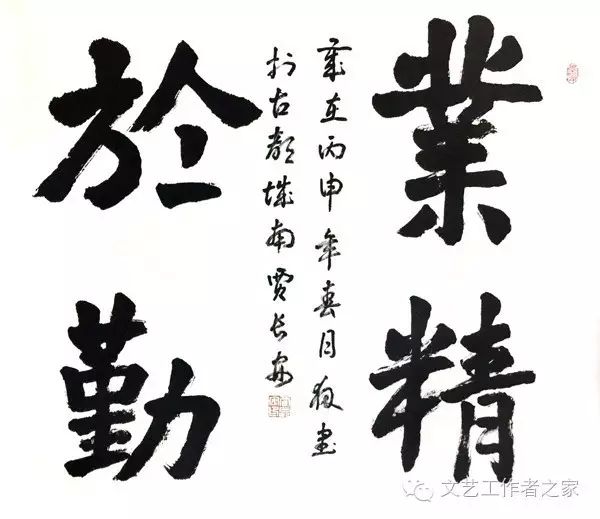 業精
於勤
歲在丙申年春月夜書
於古都城南贾长安
文艺工作者之家